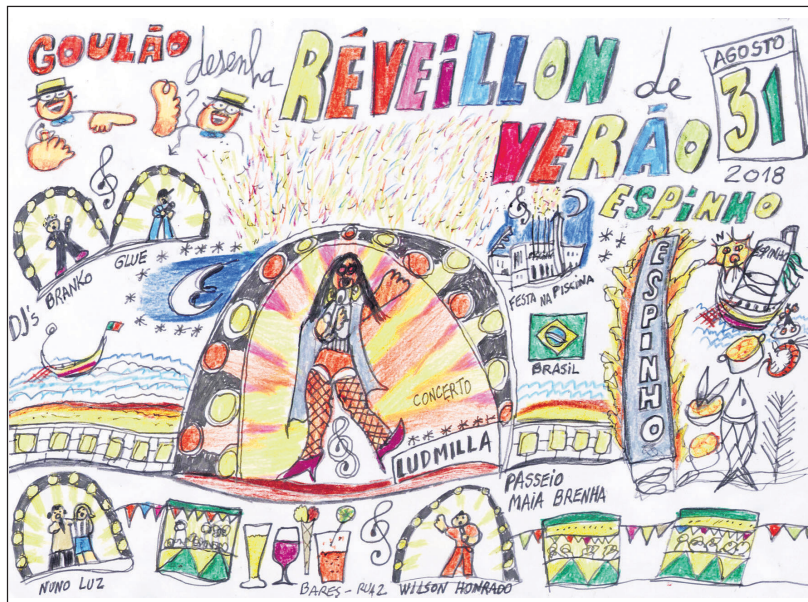 GOULÃO desenha RÉVEILLON de VERÃO
AGOSTO
31
2018
ESPINHO
BRANKO
GLUE
DJ's
FESTA NA PISCINA
ESPINHO
ESPINHO
BRASIL
CONCERTO
LUDMILLA
PASSEIO
MAIA BRENHA
NUNO LUZ
BARES - RU42
WILSON HONRADO